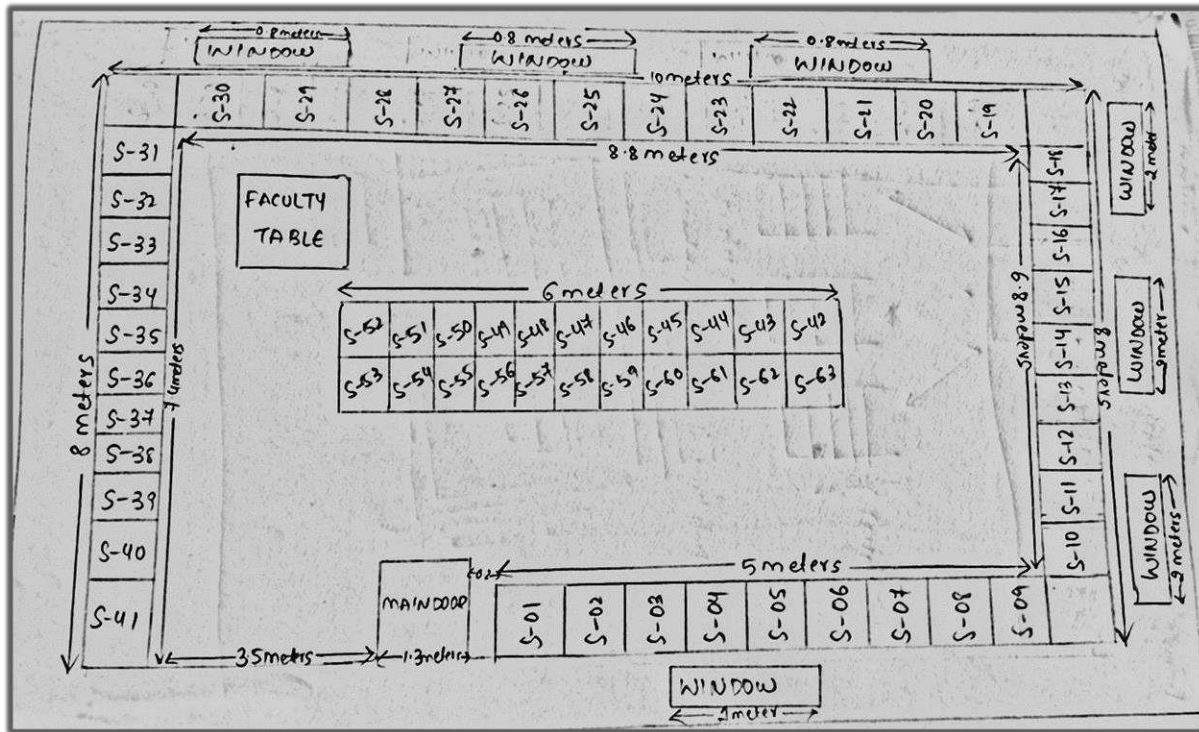 0.8 meters 0.8 meters 0.8 meters
WINDOW WINDOW WINDOW
10 meters
S-30 S-29 S-28 S-27 S-26 S-25 S-24 S-23 S-22 S-21 S-20 S-19
8.8 meters
S-31
S-32
S-33
S-34
S-35
S-36
S-37
S-38
S-39
S-40
S-41
8 meters
7.4meters
FACULTY
TABLE
6 meters
S-52 S-51 S-50 S-49 S-48 S-47 S-46 S-45 S-44 S-43 S-42
S-53 S-54 S-55 S-56 S-57 S-58 S-59 S-60 S-61 S-62 S-63
6.8 meters
S-18
S-17
S-16
S-15
S-14
S-13
S-12
S-11
S-10
8 meters
WINDOW
2 meter
WINDOW
2 meter
WINDOW
2 meters
MAINDOOR
0.2
5 meters
S-01 S-02 S-03 S-04 S-05 S-06 S-07 S-08 S-09
3.5 meters 1.3 meters
WINDOW
1 meter